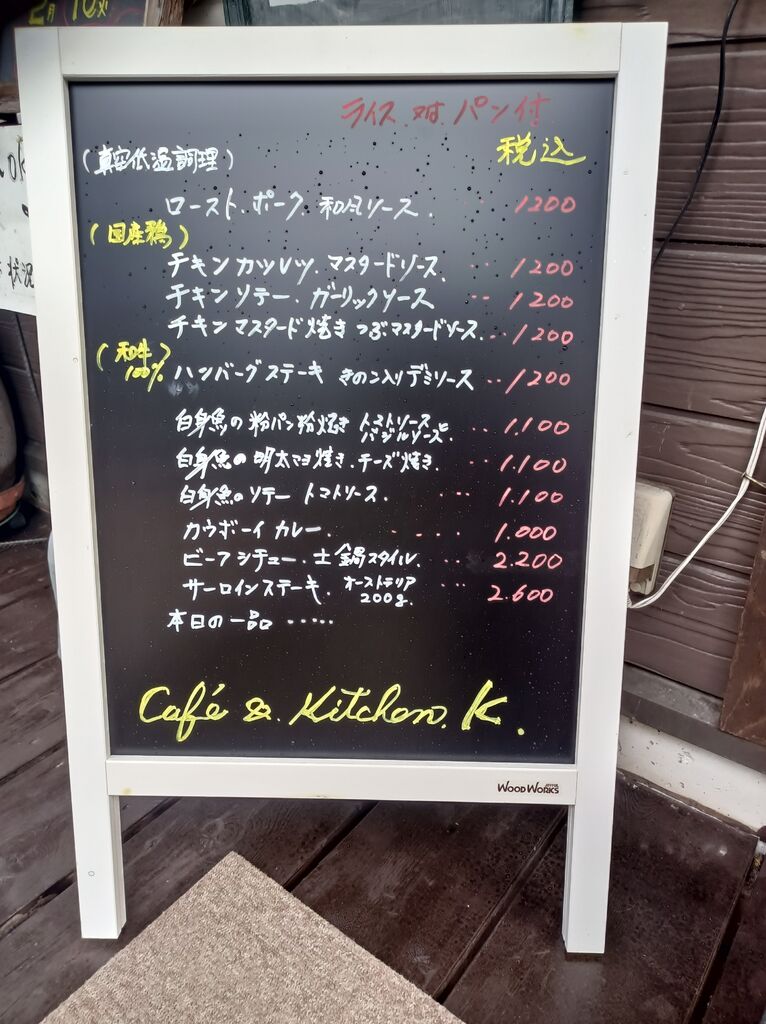 2月10火
ライス 又は パン付
税込
(真空低温調理)
ロースト.ポーク.和風ソース. 1200
(国産鶏)
チキンカツレツ.マスタードソース.. 1200
チキンソテー.ガーリックソース .. 1200
チキンマスタード焼き つぶマスタードソース... 1200
(和牛100%)
ハンバーグステーキ きのこ入りデミソース .. 1200
白身魚の粉パン粉焼き トマトソース バジルソース .. 1.100
白身魚の明太マヨ焼き.チーズ焼き. ... 1.100
白身魚のソテー トマトソース. ... 1.100
カウボーイカレー. .... 1.000
ビーフシチュー.土鍋スタイル. ... 2.200
サーロインステーキ. オーストラリア 200g. ... 2.600
本日の一品 .....
Café & Kitchen. K.
WOODWORKS
状況